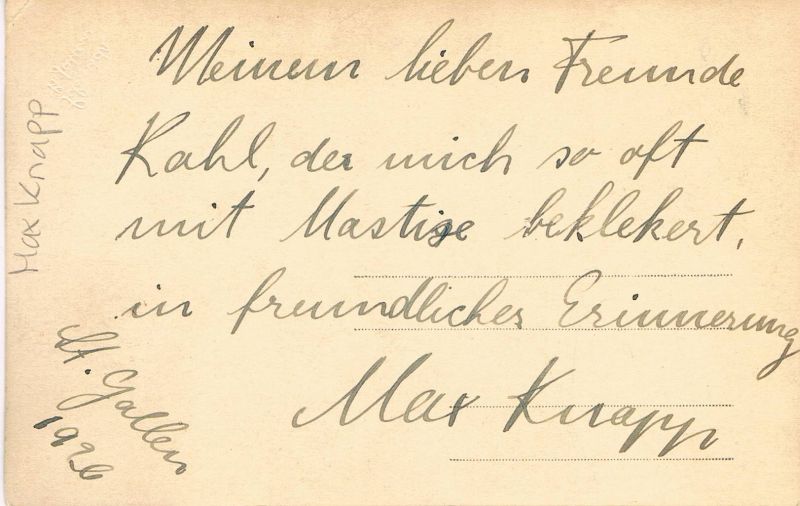 Meinem lieben Freunde
Kahl, der mich so oft
mit Mastixe beklekert,
in freundlicher Erinnerung
Max Knapp
St. Gallen
1926
Max Knapp